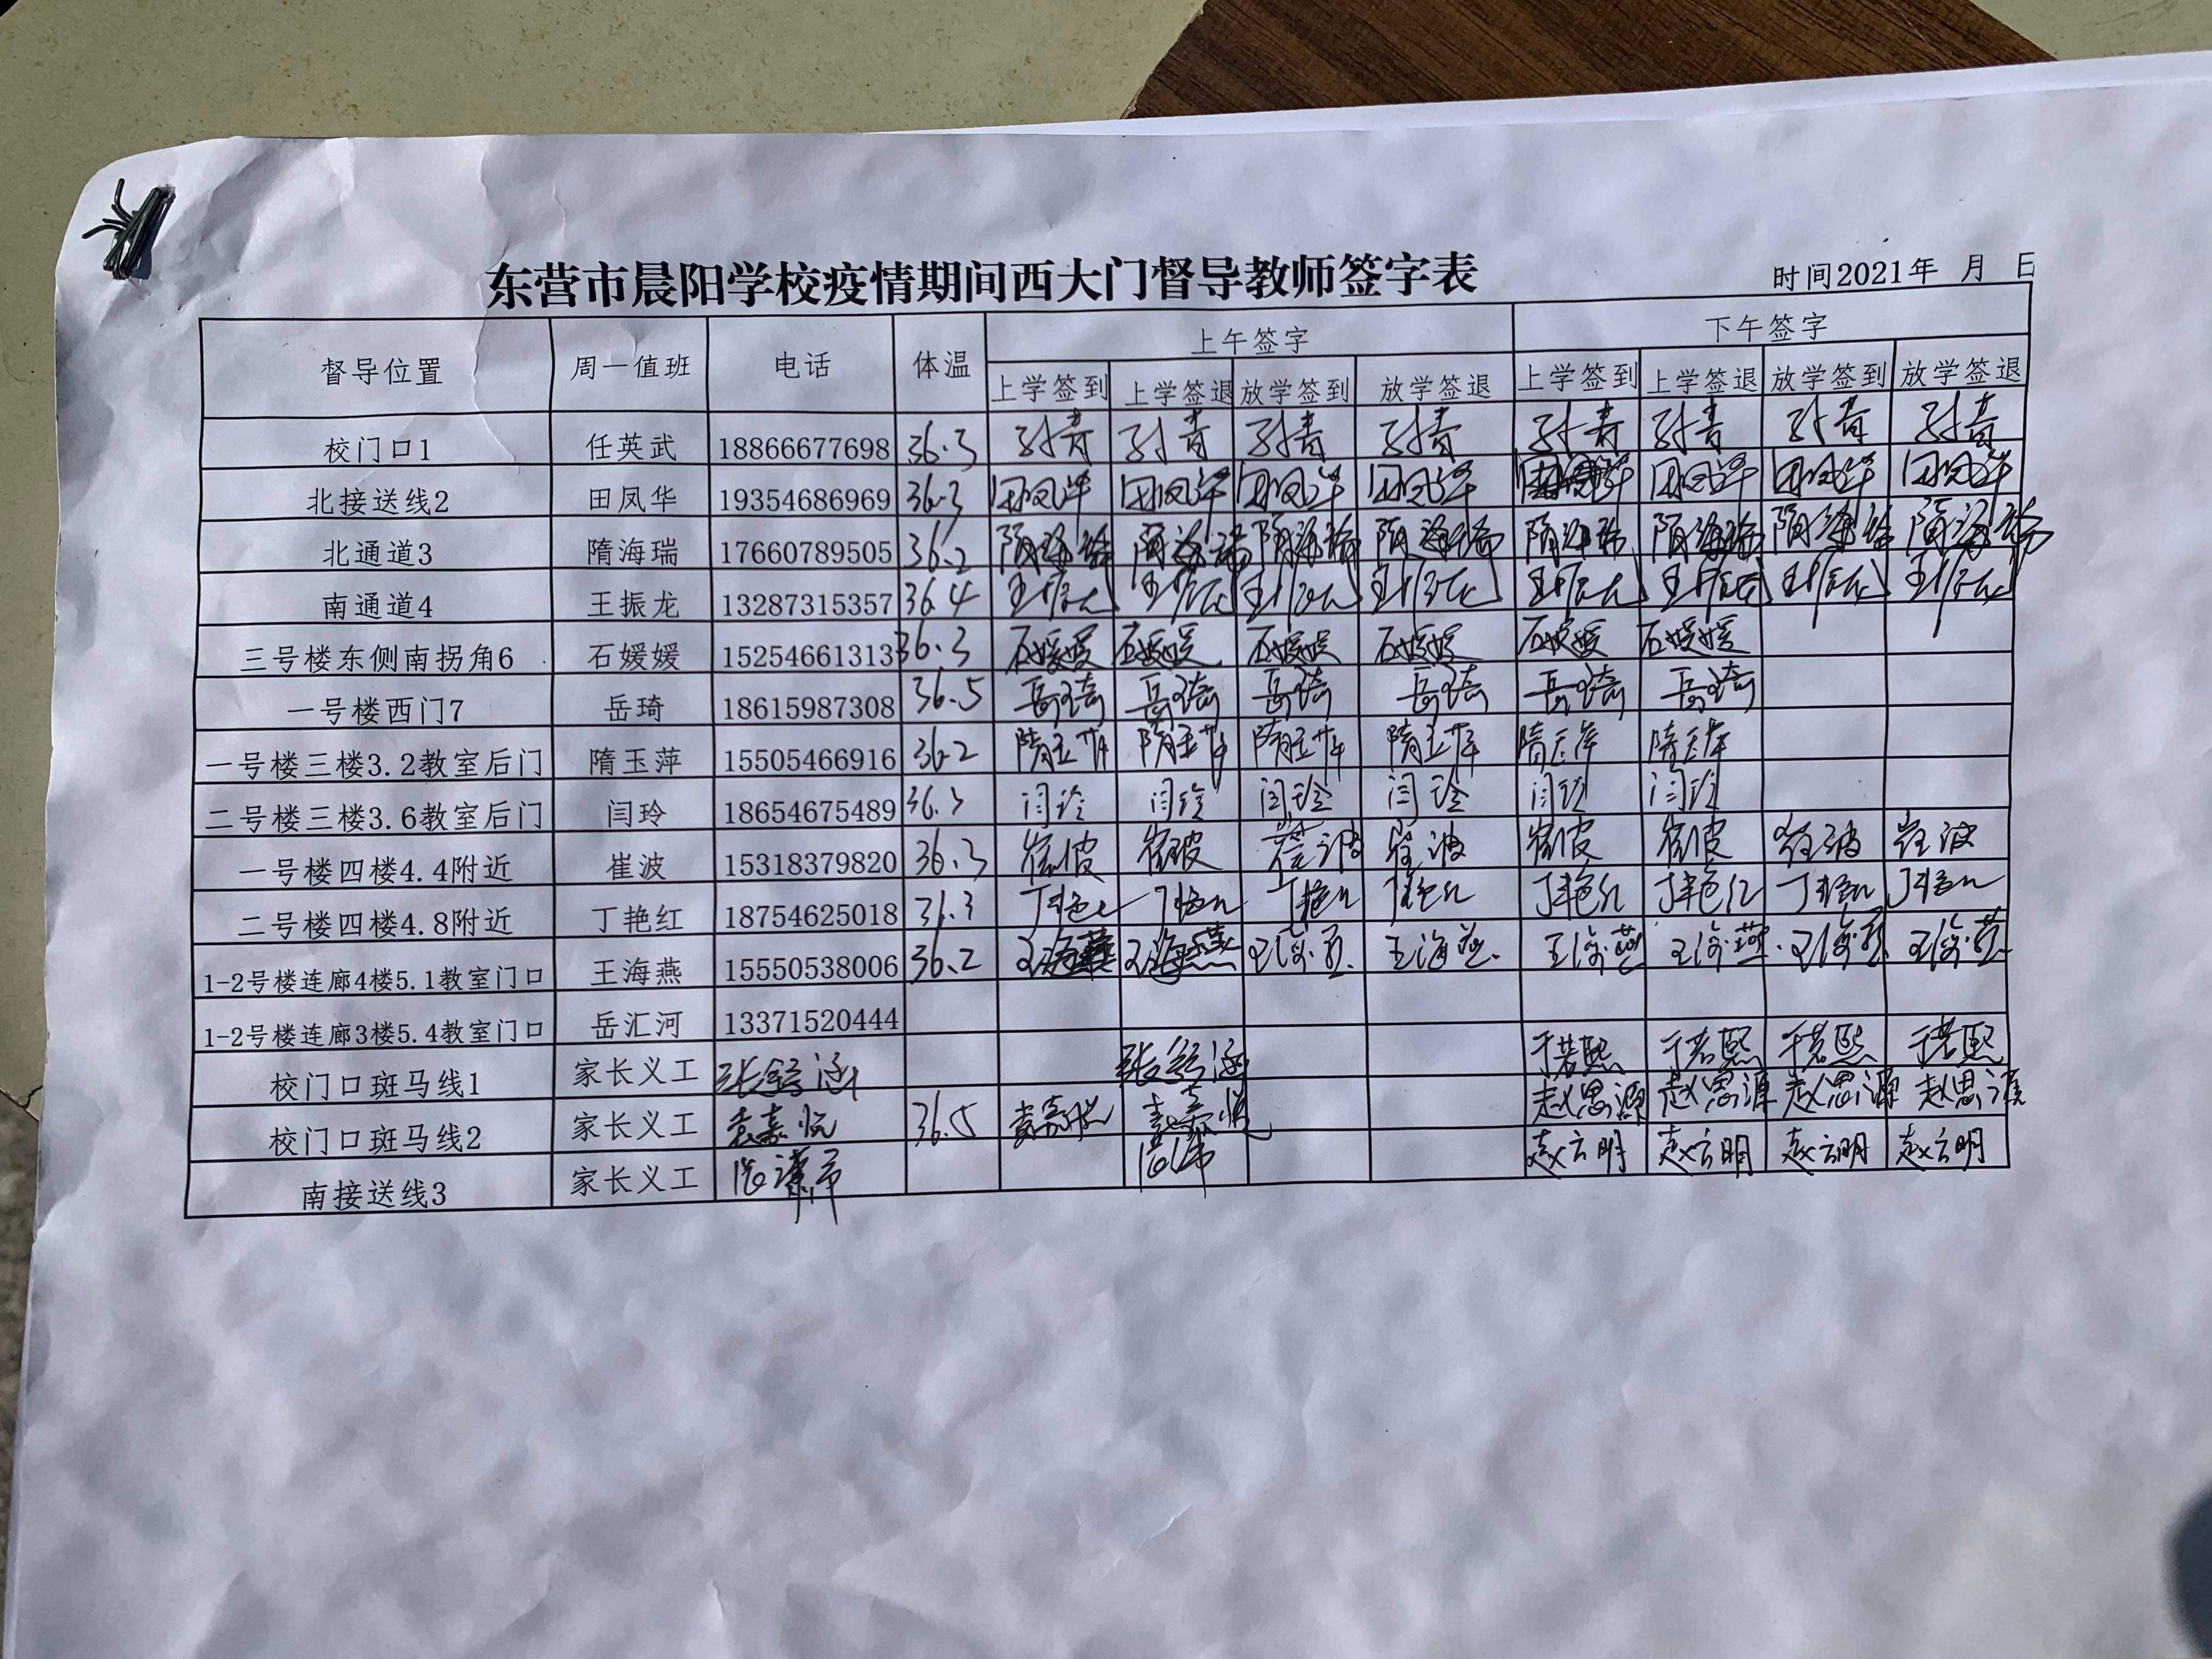 东营市晨阳学校疫情期间西大门督导教师签字表
时间2021年 月 日
督导位置 周一值班 电话 体温 上午签字 下午签字
上学签到 上学签退 放学签到 放学签退 上学签到 上学签退 放学签到 放学签退
校门口1 任英武 18866677698 36.3 孙青 孙青 孙青 孙青 孙青 孙青 孙青 孙青
北接送线2 田凤华 19354686969 36.3 田凤华 田凤华 田凤华 田凤华 田凤华 田凤华 田凤华 田凤华
北通道3 隋海瑞 17660789505 36.2 隋海瑞 隋海瑞 隋海瑞 隋海瑞 隋海瑞 隋海瑞 隋海瑞 隋海瑞
南通道4 王振龙 13287315357 36.4 王振龙 王振龙 王振龙 王振龙 王振龙 王振龙 王振龙 王振龙
三号楼东侧南拐角6 石媛媛 15254661313 36.3 石媛媛 石媛媛 石媛媛 石媛媛 石媛媛 石媛媛
一号楼西门7 岳琦 18615987308 36.5 岳琦 岳琦 岳琦 岳琦 岳琦 岳琦
一号楼三楼3.2教室后门 隋玉萍 15505466916 36.2 隋玉萍 隋玉萍 隋玉萍 隋玉萍 隋玉萍 隋玉萍
二号楼三楼3.6教室后门 闫玲 18654675489 36.3 闫玲 闫玲 闫玲 闫玲 闫玲 闫玲
一号楼四楼4.4附近 崔波 15318379820 36.3 崔波 崔波 崔波 崔波 崔波 崔波 崔波 崔波
二号楼四楼4.8附近 丁艳红 18754625018 36.3 丁艳红 丁艳红 丁艳红 丁艳红 丁艳红 丁艳红 丁艳红 丁艳红
1-2号楼连廊4楼5.1教室门口 王海燕 15550538006 36.2 王海燕 王海燕 王海燕 王海燕 王海燕 王海燕 王海燕 王海燕
1-2号楼连廊3楼5.4教室门口 岳汇河 13371520444
校门口斑马线1 家长义工 于若熙 于若熙 于若熙 于若熙
校门口斑马线2 家长义工 袁嘉悦 36.5 袁嘉悦 袁嘉悦 赵思源 赵思源 赵思源 赵思源
南接送线3 家长义工 赵云明 赵云明 赵云明 赵云明